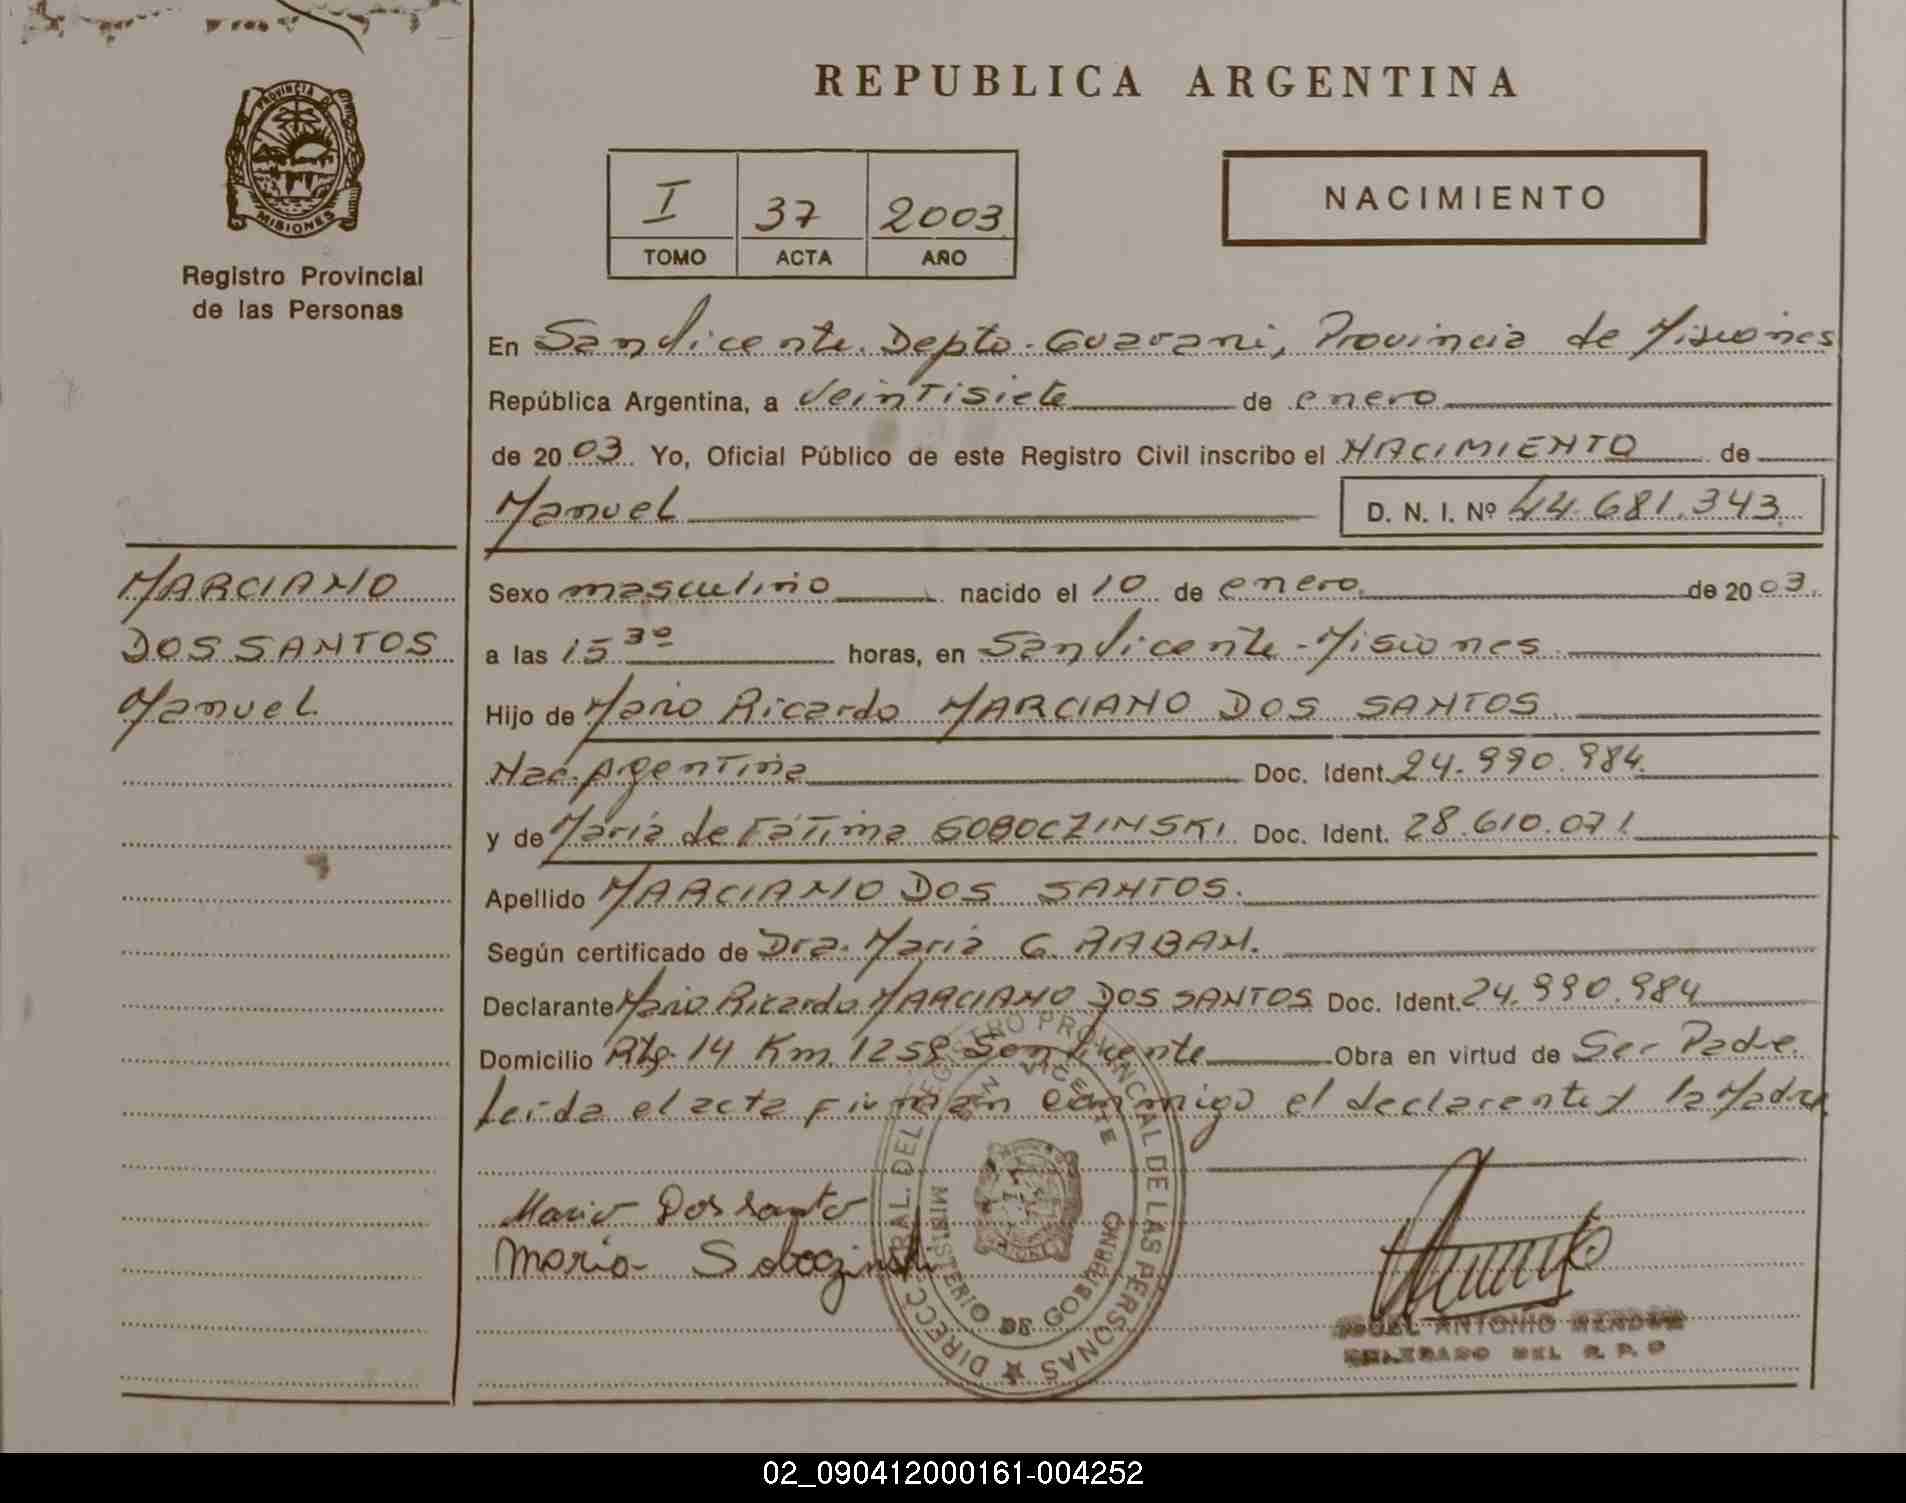 REPUBLICA ARGENTINA
PROVINCIA DE
MISIONES
Registro Provincial
de las Personas
I 37 2003
TOMO ACTA AÑO
NACIMIENTO
En San Vicente. Depto. Guarani, Provincia de Misiones
República Argentina, a veintisiete de enero
de 2003. Yo, Oficial Público de este Registro Civil inscribo el NACIMIENTO de
Manuel D. N. I. Nº 44.681.343
MARCIANO
DOS SANTOS
Manuel
Sexo masculino nacido el 10 de enero de 2003.
a las 15 30 horas, en San Vicente - Misiones
Hijo de Mario Ricardo MARCIANO DOS SANTOS
Nac. Argentina Doc. Ident. 24.990.984
y de María de Fátima SOBOCZINSKI Doc. Ident. 28.610.071
Apellido MARCIANO DOS SANTOS.
Según certificado de Dra. María G. RABAN.
Declarante Mario Ricardo MARCIANO DOS SANTOS Doc. Ident. 24.990.984
Domicilio Rta. 14 Km. 1259 San Vicente Obra en virtud de Ser Padre.
Leída el acta firman conmigo el declarante y la Madre
Mario Dos Santo
Maria
DIRECC. GRAL. DEL REGISTRO PROVINCIAL DE LAS PERSONAS
MINISTERIO DE GOBIERNO
VICENTE
ANTONIO
DEL R. P. P
02_090412000161-004252